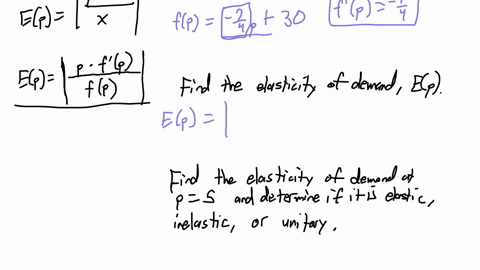 E(p) = | / x |
f(p) = -7/4 p + 30
f'(p) = -7/4
E(p) = | p · f'(p) / f(p) |
Find the elasticity of demand, E(p).
E(p) = |
Find the elasticity of demand at
p = 5 and determine if it is elastic,
inelastic, or unitary.